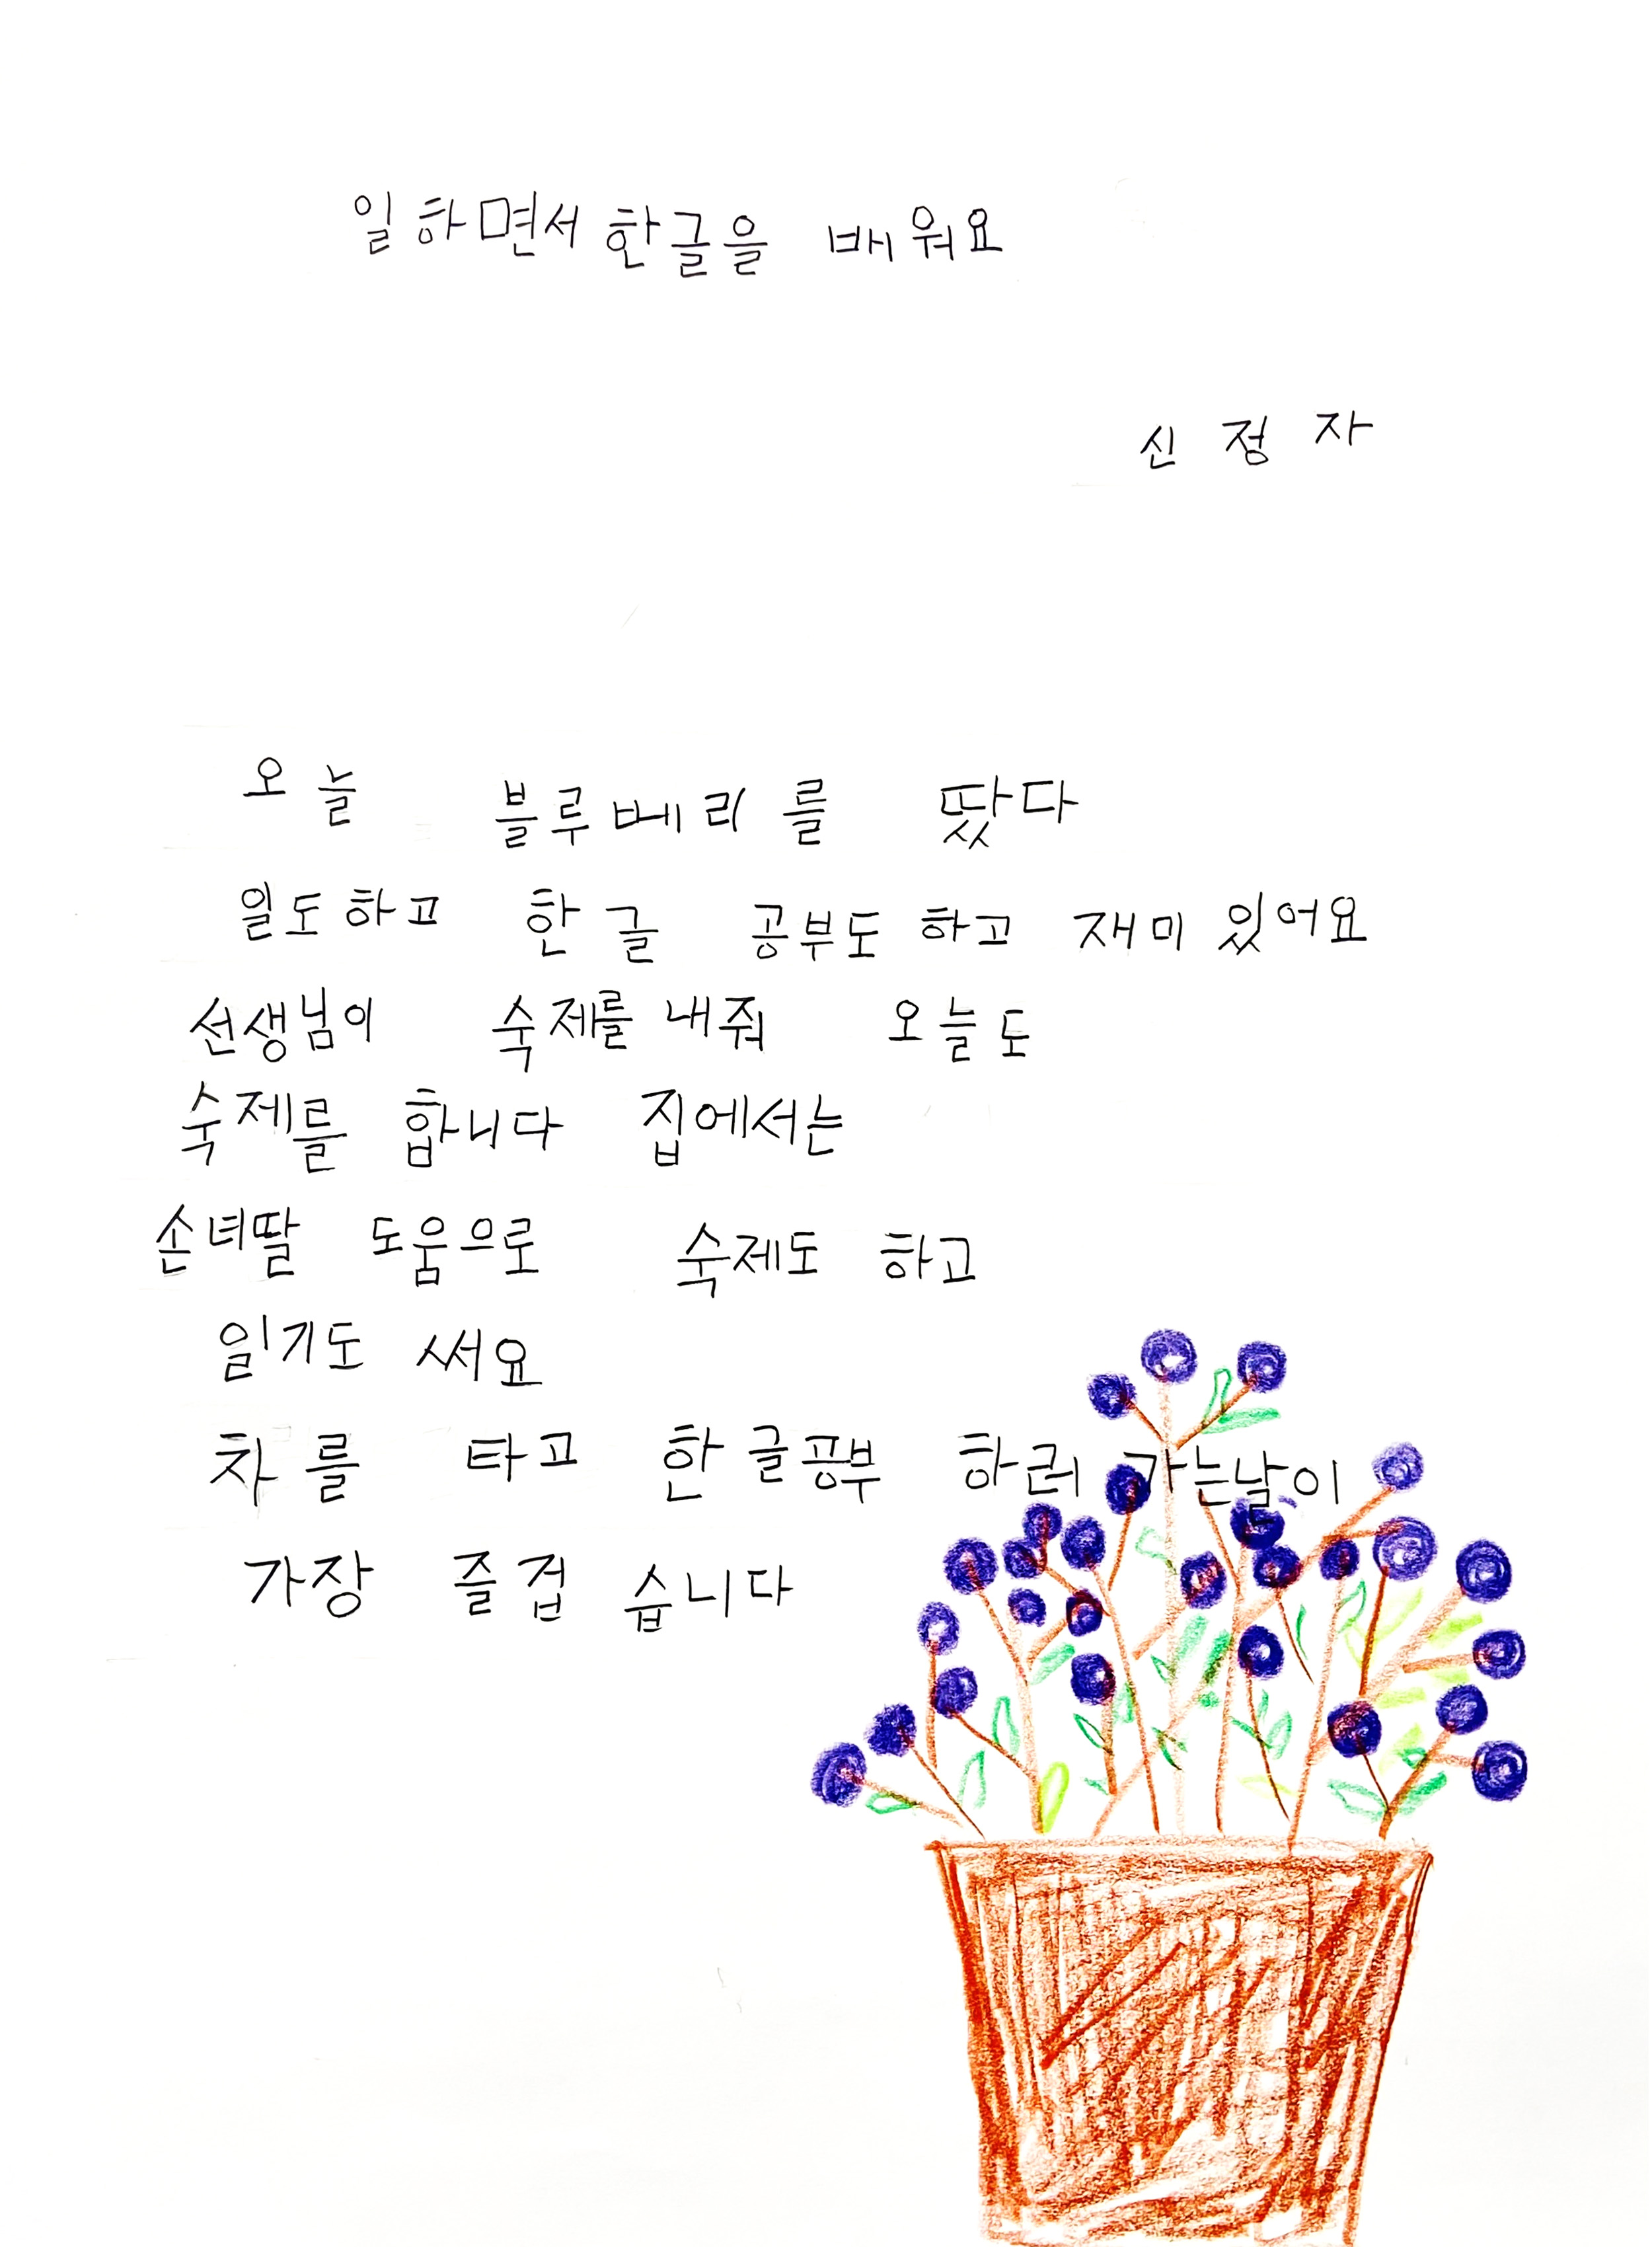 일하면서 한글을 배워요
신정자
오늘 블루베리를 땄다
일도하고 한글 공부도 하고 재미있어요
선생님이 숙제를 내줘 오늘도
숙제를 합니다 집에서는
손녀딸 도움으로 숙제도 하고
읽기도 써요
차를 타고 한글공부 하러 가는날이
가장 즐겁습니다